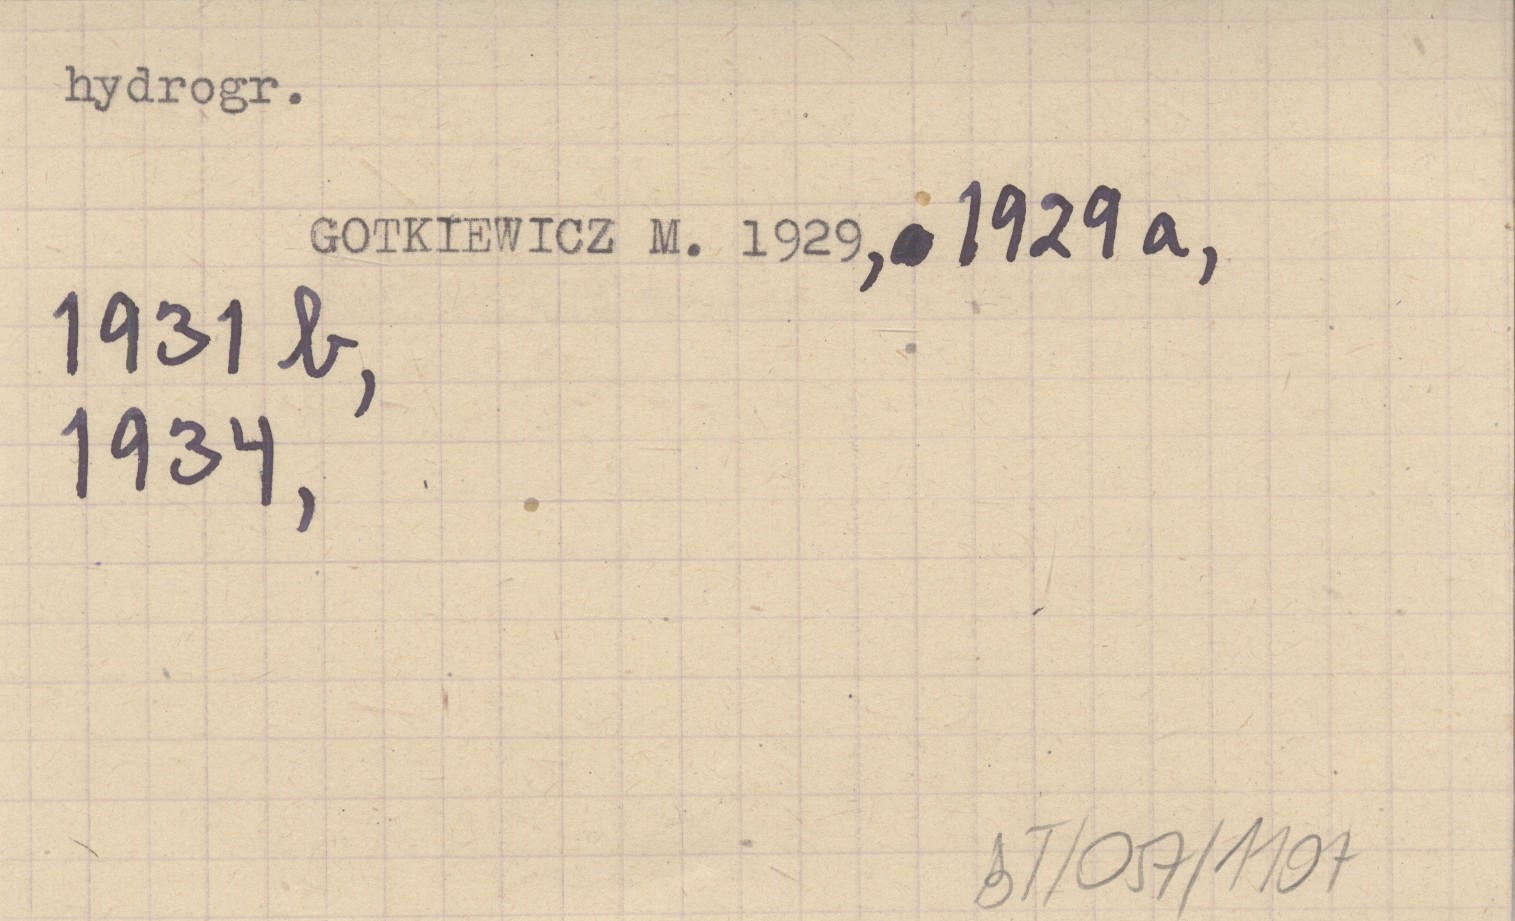 hydrogr.
GOTKIEWICZ M. 1929, 1929 a,
1931 b,
1934,
BT/057/1197